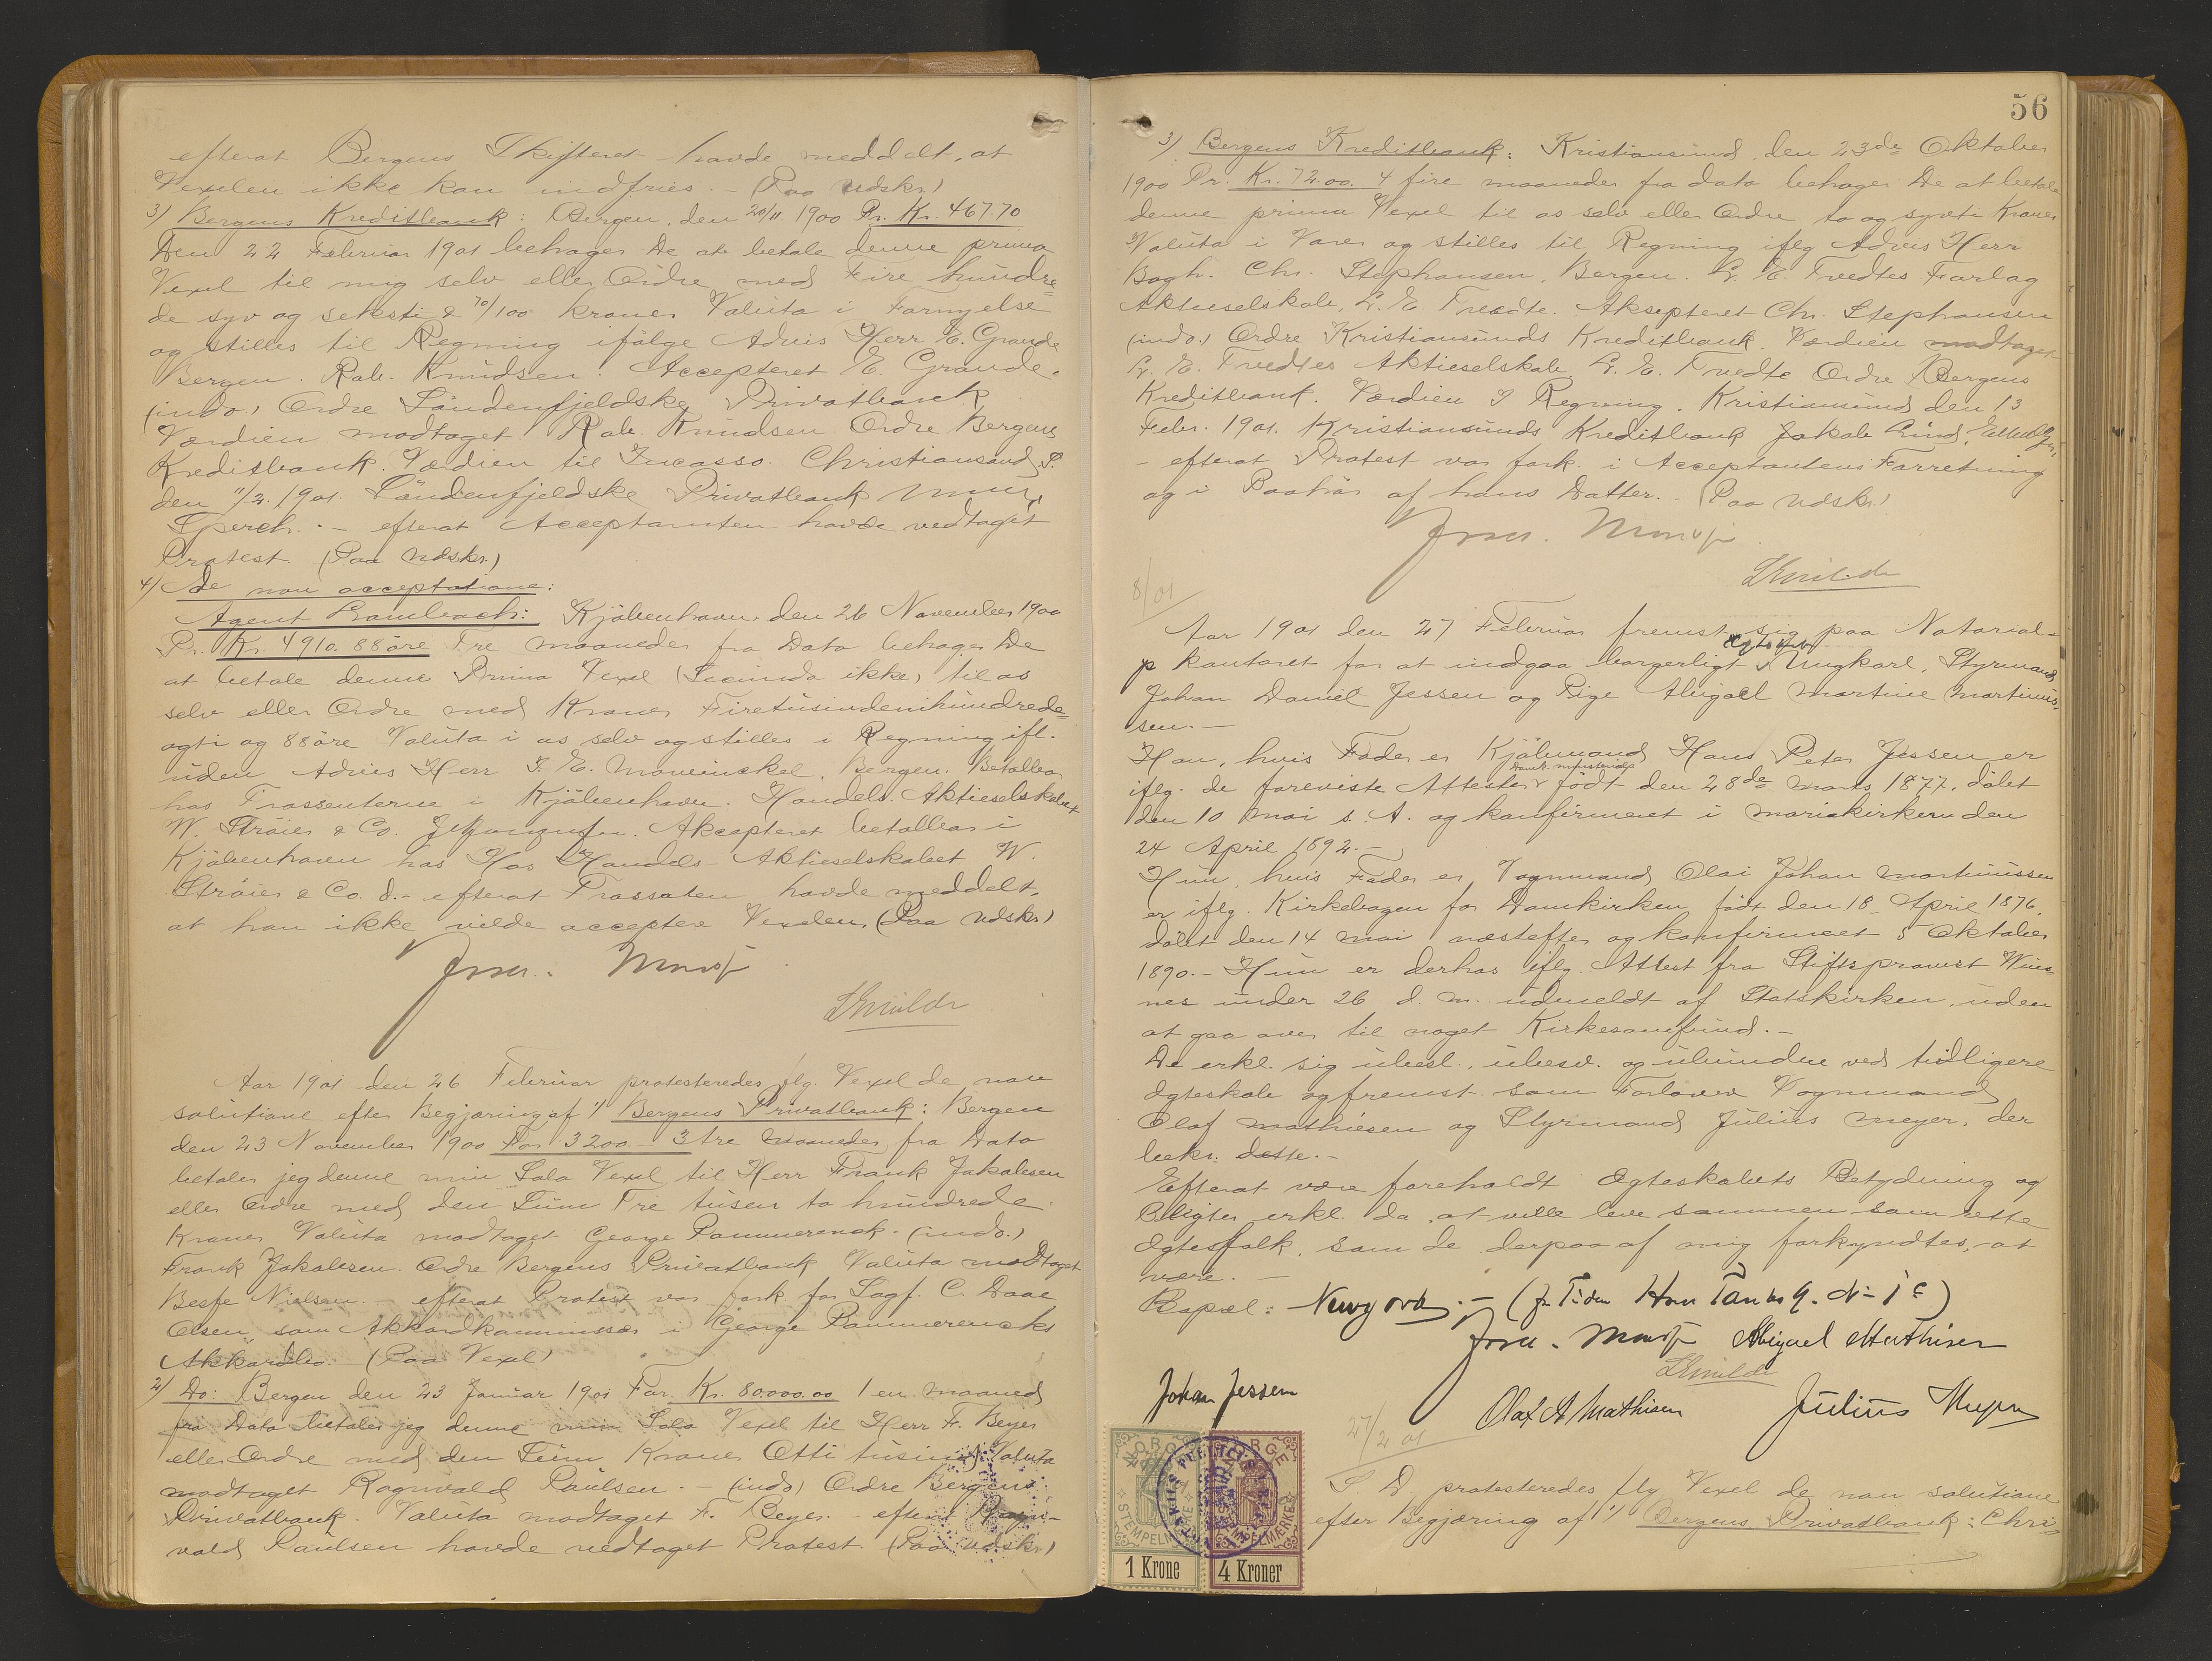 efterat Bergens Skifteret havde meddelt, at
Vexelen ikke kan indfries. – (Paa Udskr.)
3) Bergens Kreditbank: Bergen, den 20/11 1900 Pr. Kr. 467.70
Den 22 Februar 1901 behager De at betale denne prima
Vexel til mig selv eller Ordre med Fire hundre=
de syv og seksti & 70/100 kroner Valuta i Fornyelse
og stilles til Regning ifölge Advis Herr E. Grande
Bergen. Rab. Knudsen. Accepteret E. Grande.
(indo.) Ordre Söndenfjeldske Privatbank
Værdien modtaget Rab. Knudsen Ordre Bergens
Kreditbank. Værdien til Incasso. Christiansand S.
den 11/2. 1901. Söndenfjeldske Privatbank
Sperch. – efterat Acceptanten havde vedtaget
Protest (Paa Udskr.)
4) De non acceptatione:
Agent Rambech: Kjöbenhavn, den 26 November 1900
Pr. Kr. 4910. 88 öre Tre maaneder fra Dato behager De
at betale denne Prima Vexel (Secunda ikke) til os
selv eller Ordre med Kroner Firetusindenihundrede=
ogti og 88 öre Valuta i os selv og stilles i Regning ifl.
uden Advis Herr J. E. Mowinckel, Bergen. Betalbar
hos Trassenterne i Kjöbenhavn. Handels Aktieselskabet
W. Ströier & Co. Akcepteret betalbar i
Kjöbenhavn hos Hos Handels-Aktieselskabet W.
Ströier & Co. d. – efterat Trassaten havde meddelt,
at han ikke vilde acceptere Vexelen. (Paa Udskr.)
Aar 1901 den 26 Februar protesteredes flg. Vexel de non
solutione efter Begjæring af 1) Bergens Privatbank: Bergen
den 23 November 1900 For 3200. 3 tre maaneder fra Dato
betaler jeg denne min Sola Vexel til Herr Frank Jakobsen
eller Ordre med den Sum Tre tusen to hundrede
Kroner Valuta modtaget George Pommerenck. (indo.)
Frank Jakobsen. Ordre Bergens Privatbank Valuta modtaget
Nielsen. – efterat Protest var fork. for Sagf. C. Daae
Olsen, som Akkordkommissær i George Pommerencks
Akkordbo. – (Paa Vexel)
2) Do: Bergen den 23 Januar 1901 For Kr. 80.000.00 1 en maaned
fra Dato betaler jeg denne min Sola Vexel til Herr F. Beyer
eller Ordre med den Sum Kroner Otti tusind Valuta
modtaget Ragnvald Paulsen. – (indo) Ordre Bergens
Privatbank. Valuta modtaget F. Beyer. – efterat Ragn-
vald Paulsen havde vedtaget Protest (Paa Udskr.)
56
3) Bergens Kreditbank: Kristiansund, den 23de Oktober
1900 Pr. Kr. 72.00. 4 fire maaneder fra dato behager De at betale
denne prima Vexel til os selv eller Ordre to og sytti Kroner
Valuta i Varer og stilles til Regning iflg Advis Herr
Bogh. Chr. Stephansen, Bergen. L. E. Tvedtes Forlag
Aktieselskab, L. E. Tvedte. Aksepteret Chr. Stephansen
(indo.) Ordre Kristiansunds Kreditbank. Værdien modtaget
L. E. Tvedtes Aktieselskab L. E. Tvedte Ordre Bergens
Kreditbank. Værdien I Regning. Kristiansund den 13
Febr. 1901. Kristiansunds Kreditbank Jakob
– efterat Protest var fork. i Acceptantens Forretning
og i Paahör af hans Datter. – (Paa Udskr.)
8/01
Aar 1901 den 27 Februar fremst. sig paa Notarial-
kontoret for at indgaa borgerligt Ægteskab Ungkarl, Styrmand
Johan Daniel Jessen og Pige Abigael Martine Martinus-
sen. –
Han, hvis Fader er Kjölmand Hans Peter Jessen er
iflg. de foreviste Attester födt den 28de Marts 1877, döbt
den 10 Mai s. A. og konfirmeret i Mariakirken den
24 April 1892. –
Hun, hvis Fader er Vognmand Olai Johan Martinussen
er iflg. Kirkebogen for Domkirken födt den 18 April 1876,
döbt den 14 Mai næstefter og konfirmeret 5 Oktober
1890. – Hun er derhos iflg. Attest fra Stiftsprovst Wins=
nes under 26 d. m. udmeldt af Statskirken, uden
at gaa over til noget Kirkesamfund. –
De erkl. sig ubesl., ubesv. og ubundne ved tidligere
Ægteskab og fremst. som Forlovere Vognmand
Olaf Mathiesen og Styrmand Julius Meyer, der
bekr. dette. –
Efterat være foreholdt Ægteskabets Betydning og
Pligter erkl. de, at ville leve sammen som rette
Ægtesfolk, som de derpaa af mig forkyndtes, at
være. –
Bopæl:
Abigael Mathisen
Johan Jessen
27/2 01
Olaf A Mathisen
Julius Meyer
NORGE
STEMPELMÆRKE
1 Krone
NORGE
STEMPELMÆRKE
4 Kroner
S. D. protesteredes flg Vexel de non solutione
efter Begjæring af 1) Bergens Privatbank: Chri=